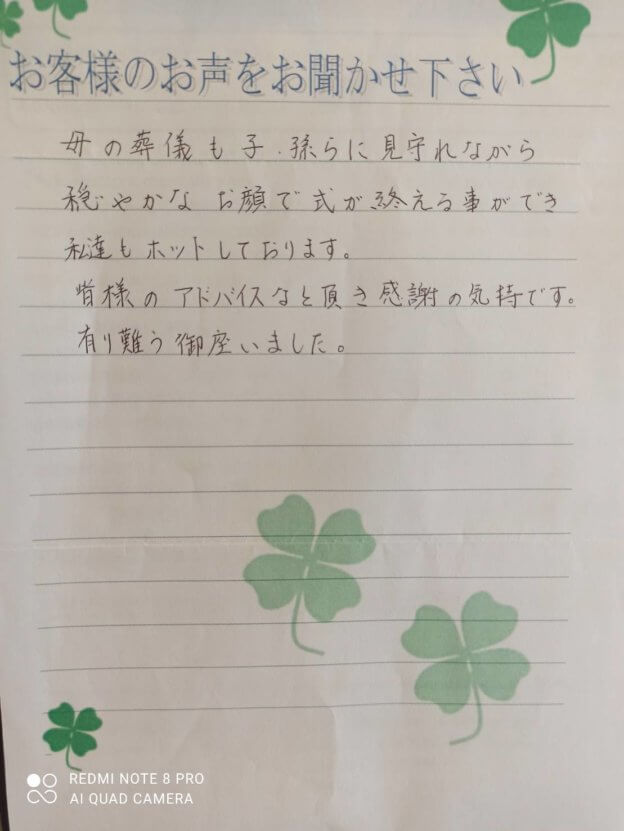 お客様のお声をお聞かせ下さい
母の葬儀も子、孫らに見守れながら
穏やかな お顔で式が終える事ができ
私達もホットしております。
皆様のアドバイスなど頂き感謝の気持です。
有り難う御座いました。
REDMI NOTE 8 PRO
AI QUAD CAMERA